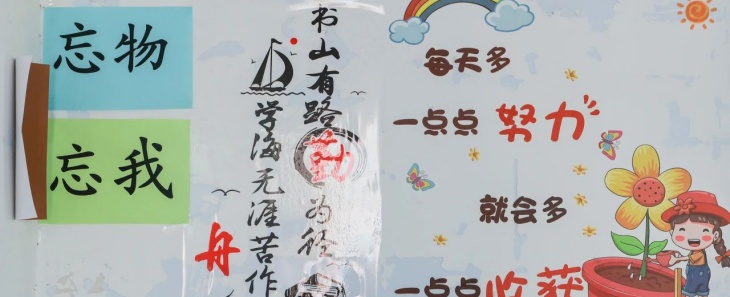 忘物
忘我
书山有路勤为径
学海无涯苦作
舟
每天多
一点点努力
就会多
一点点收获